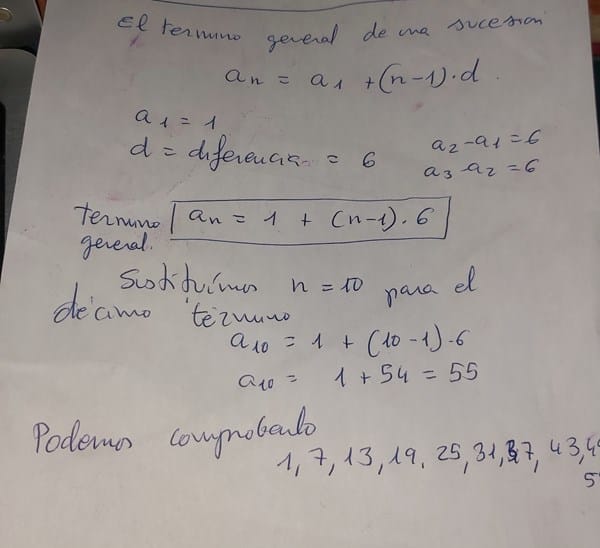 El termino general de una sucesion
an = a1 + (n-1)·d.
a1 = 1
d = diferencia = 6 a2-a1=6
a3-a2=6
termino an = 1 + (n-1)·6
general.
Sustituímos n = 10 para el
décimo término
a10 = 1 + (10-1)·6
a10 = 1 + 54 = 55
Podemos comprobarlo
1, 7, 13, 19, 25, 31, 37, 43,